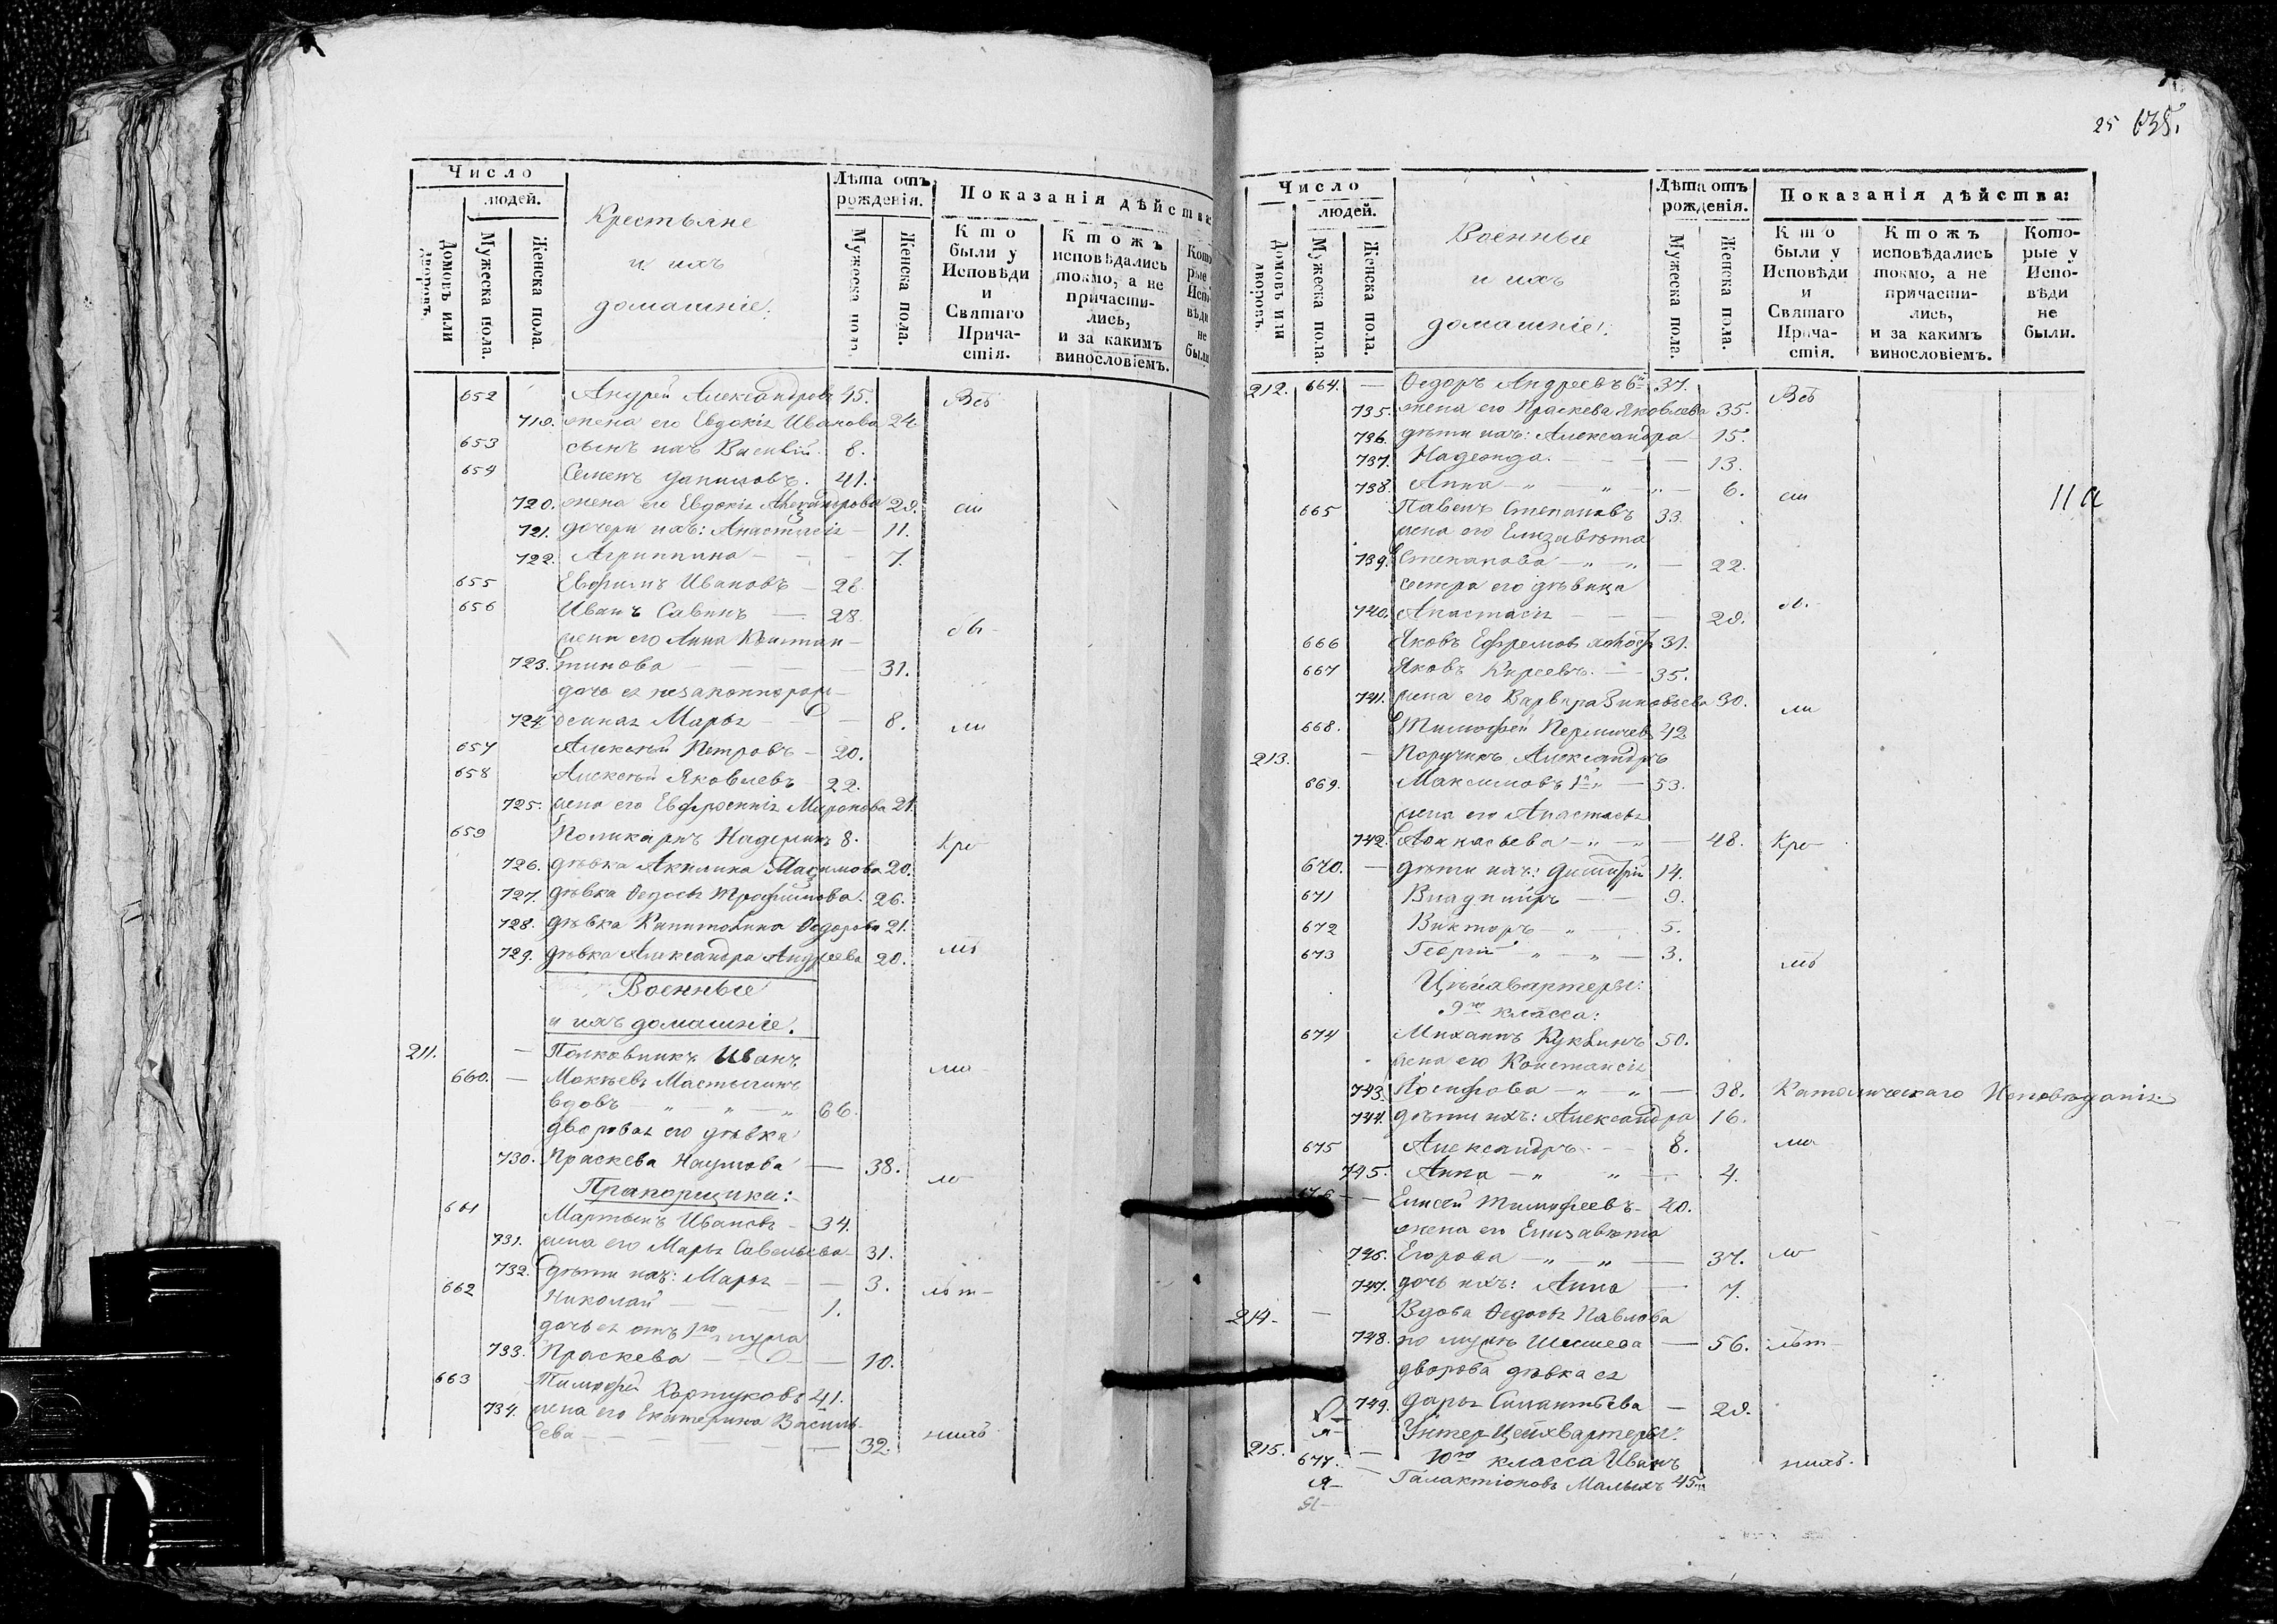 Число
людей.
Домовъ или дворовъ.
Мужеска пола.
Женска пола.
Крестьяне
и ихъ
домашніе.
Лѣта отъ рожденія.
Мужеска пола.
Женска пола.
Показанія дѣйства:
Кто были у Исповѣди и Святаго Причастія.
Ктожъ исповѣдались токмо, а не причастились, и за какимъ винословіемъ.
652 Андрей Александровъ 45. Всѣ
719. жена его Евдокія Иванова 24
653 сынъ ихъ Василій 8.
654 Семенъ Даниловъ. 41.
720. жена его Евдокія Александрова 29. сіи
721. дочери ихъ: Анастасія 11.
722. Агриппина 7.
655 Евфимъ Ивановъ 28.
656 Иванъ Савинъ 28.
жена его Анна Констан-
723. тинова 31.
дочь ея незаконнорож-
724. денная Марья 8. ли
657 Алексѣй Петровъ 20.
658 Алексѣй Яковлевъ 22.
725. жена его Евфросинія Миронова 21.
659 Поликарпъ 8. Кро-
726. дѣвка Акилина Максимова 20.
727. дѣвка Ѳедосья Трофимова. 26.
728. дѣвка Капитолина Ѳедорова 21.
729. дѣвка Александра Андреева 20. мѣ
Военные
и ихъ домашніе.
211. Полковникъ Иванъ
660. Мокѣевъ ма-
вдовъ 66.
дворовая его дѣвка
730. Праскева Наумова 38. ло-
Прапорщики:
661 Мартынъ Ивановъ 34.
731. жена его Марья Савельева 31.
732. дѣти ихъ: Марья 3. лѣт-
662 Николай 1.
дочь ея отъ 1го мужа
733. Праскева 10.
663 Тимофей 41.
734. жена его Екатерина Василь-
ева 32. нихъ
25 635.
Число
людей.
Домовъ или дворовъ.
Мужеска пола.
Женска пола.
Военные
и ихъ
домашніе:
Лѣта отъ рожденія.
Мужеска пола.
Женска пола.
Показанія дѣйства:
Кто были у Исповѣди и Святаго Причастія.
Ктожъ исповѣдались токмо, а не причастились, и за какимъ винословіемъ.
Которые у Исповѣди не были.
212. 664. Ѳедоръ Андреевъ 37. Всѣ
735. жена его Праскева Яковлева 35.
736. дѣти ихъ: Александра 15.
737. Надежда. 13.
738. Анна 6. сіи
665 Павелъ Степановъ 33.
жена его Елизавѣта
739. Степанова 22.
сестра его дѣвица
740. Анастасія 29.
666 Яковъ Ефремовъ холост 31.
667 Яковъ Киреевъ. 35.
741. жена его Варвара Зиновьева 30. ли
668. Тимофей 42
213. Поручикъ Александръ
669. Максимовъ 53.
жена его Анастасья
742. Афанасьева 48. Кро-
670. дѣти ихъ: Дмитрій 14.
671 Владимиръ 9.
672 Викторъ 5.
673 Георгій 3. мѣ
Цейхвартеры:
9го класса:
674 Михаилъ Куклинъ 50.
жена его Констансія
743. Іосифова 38. Католическаго Исповѣданія
744. дѣти ихъ: Александра 16.
675 Александръ 8. ма
745. Анна 4.
676 Елисей Тимофеевъ 40.
жена его Елизавѣта
746. Егорова 37. ло
747. дочь ихъ: Анна 7.
214. Вдова Ѳедосья Павлова
748. по мужѣ 56. лѣт-
дворова дѣвка ея
749. Дарья 29.
Унтер-Цейхвартеры:
215. 677. 10го класса Иванъ нихъ.
Галактіоновъ Малыхъ 45.